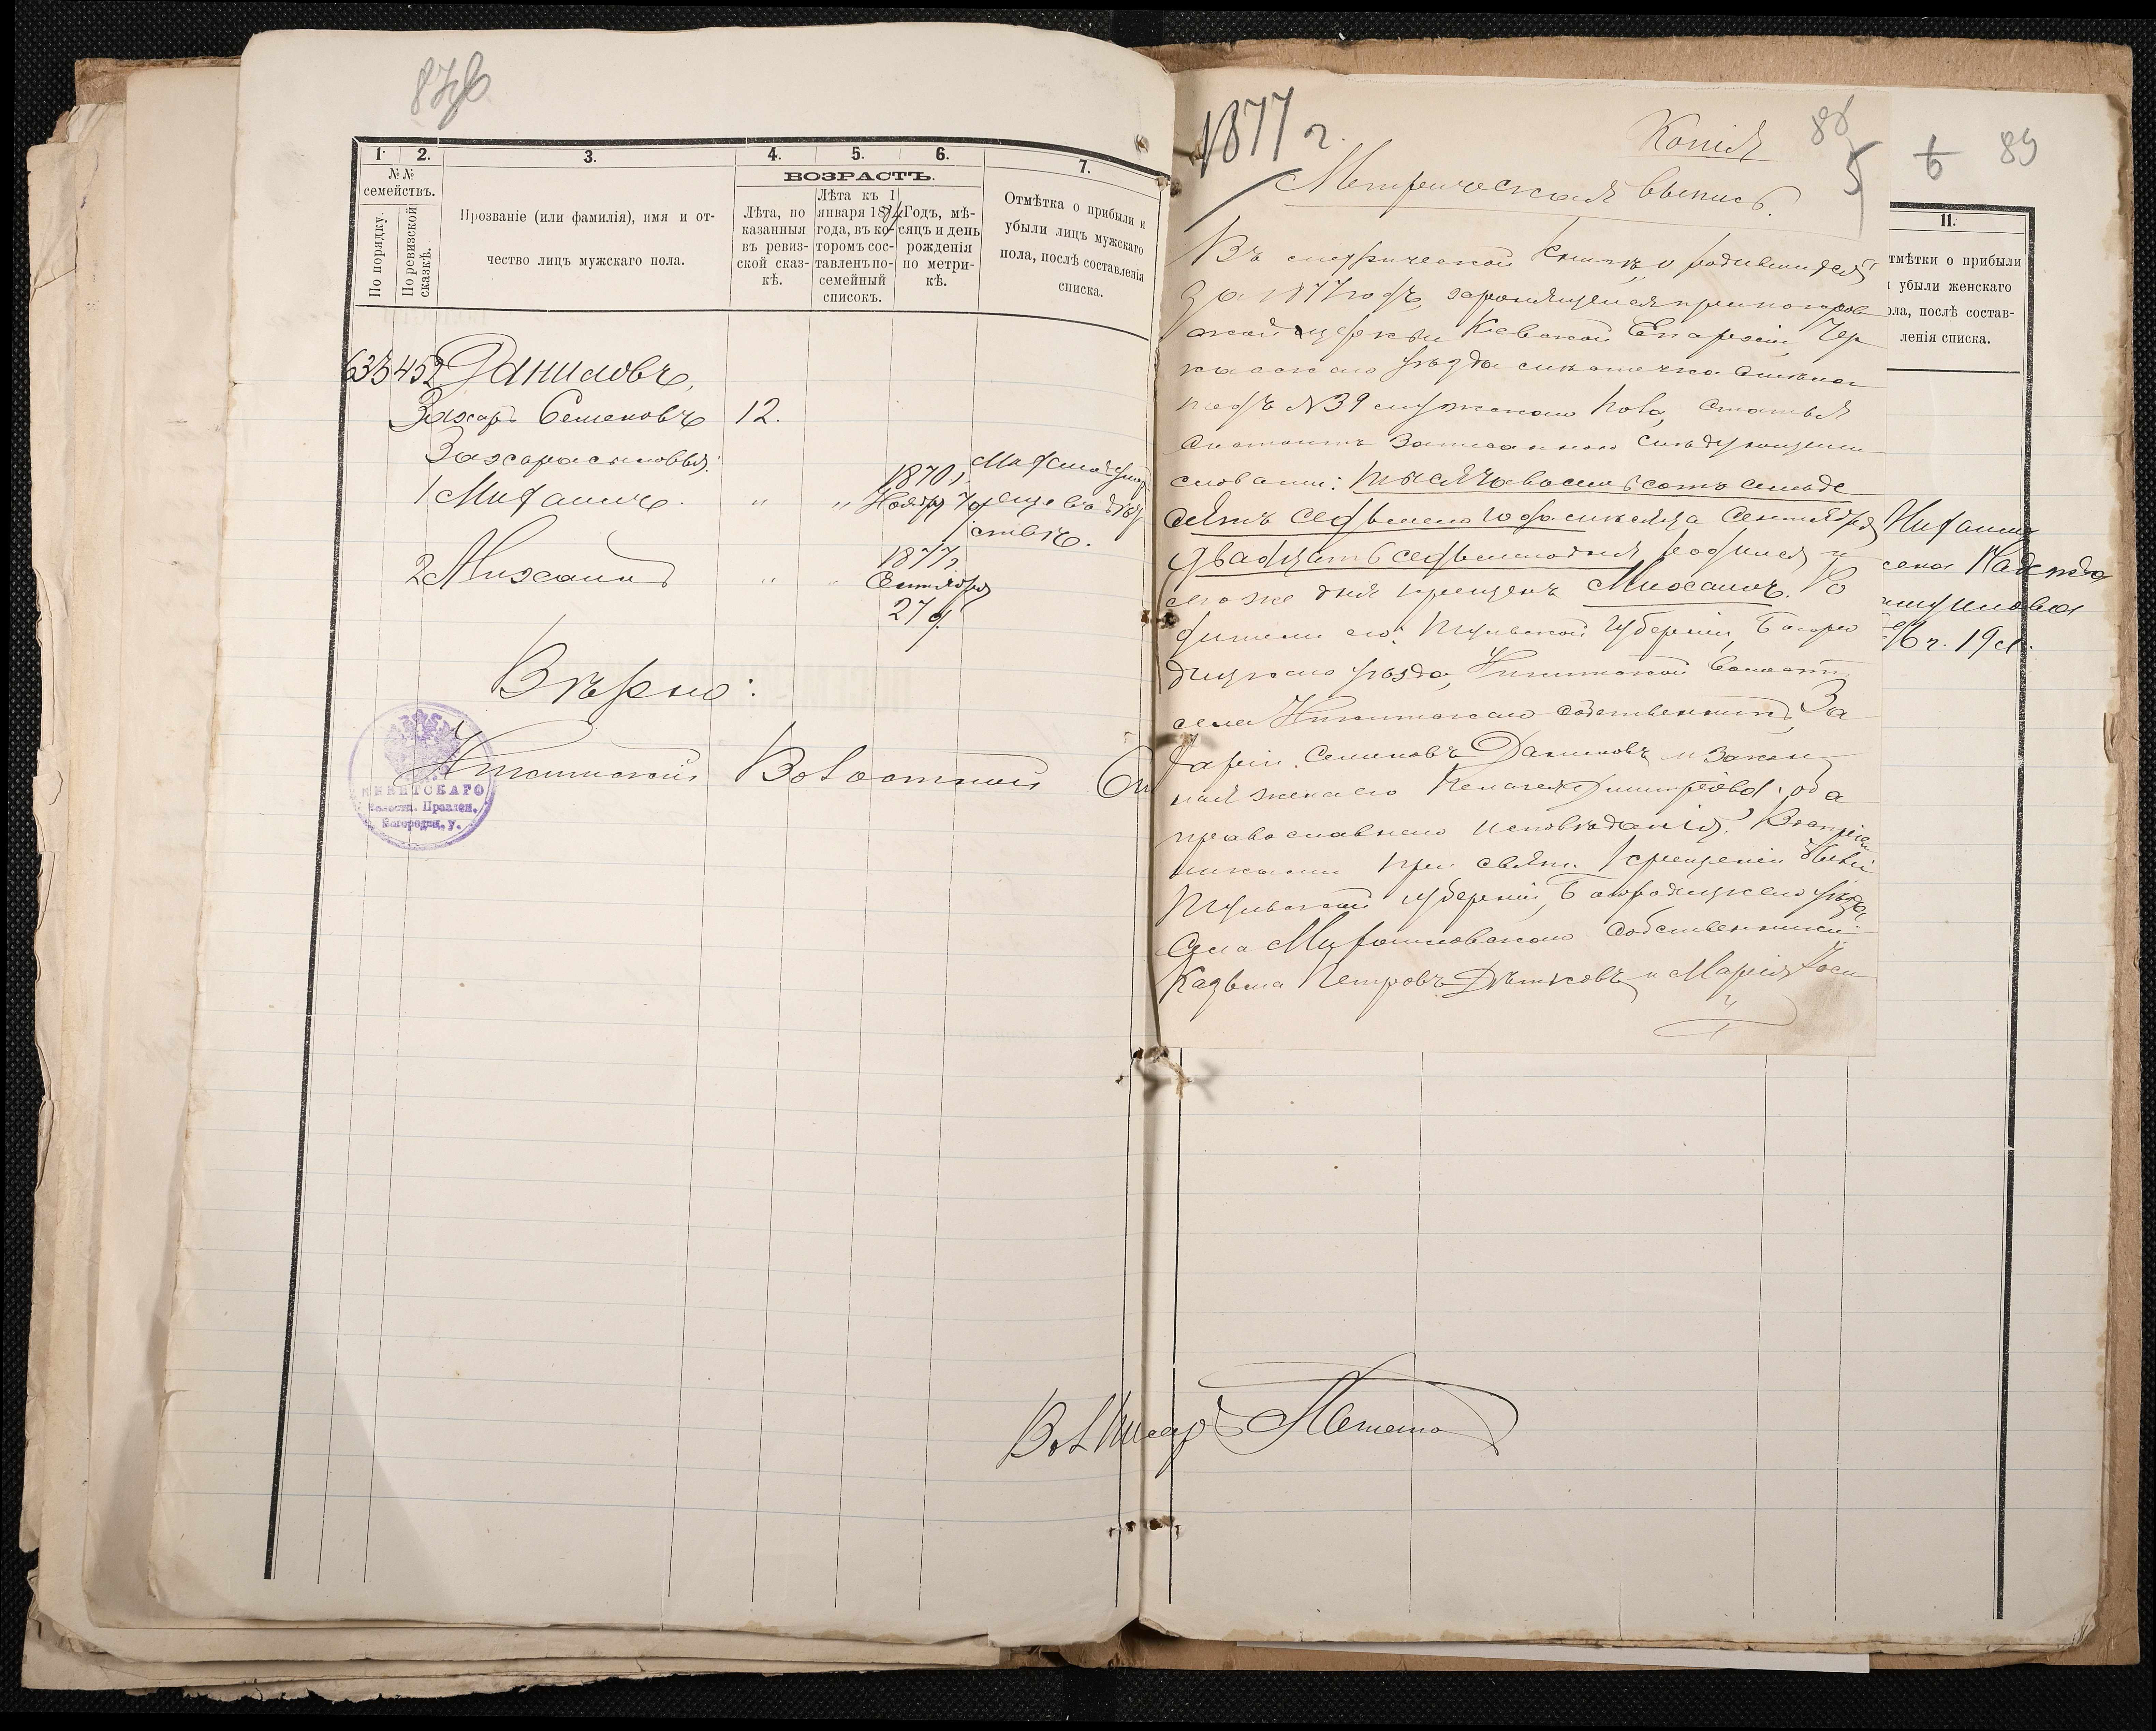 1.
2.
3.
4.
5.
6.
7.
ВОЗРАСТЪ.
№№ семействъ.
По порядку.
По ревизской сказкѣ.
Прозваніе (или фамилія), имя и от-
чество лицъ мужскаго пола.
Лѣта, по
казанныя
въ ревиз-
ской сказ-
кѣ.
Лѣта къ 1
января 1874
года, въ ко-
торомъ сос-
тавленъ по-
семейный
списокъ.
Годъ, мѣ-
сяцъ и день
рожденія
по метри-
кѣ.
Отмѣтка о прибыли и
убыли лицъ мужскаго
пола, послѣ составленія
списка.
635 452 Даниловъ,
Захаръ Семеновъ 12.
Захара сыновья:
1 Митфанъ " " 1870 г. Ноября 7 д.
еще въ дѣт
ствѣ.
2 Михаилъ " " 1877 г.
Сентября
27 д.
Вѣрно:
Никитскій Волостной
НИКИТСКАГО
Волостн. Правлен.
Богородиц. у.
Вол Писарь
1877 г.
Копія
88
5
6
89
Метрическая выпись.
Въ метрической книгѣ о родившихся
за 1877 годъ, хранящейся при покров
ской церкви Кіевской Епархіи, Чер
касскаго уѣзда мѣстечка Смѣла
подъ №39 мужскаго пола, статья
записанною слѣдующими
словами: тысяча восемьсотъ семьде
сятъ седьмаго года мѣсяца Сентября
двадцать седьмого дня родился и
того же дня крещенъ Михаилъ. Ро
дители его: Тульской губерніи, Богоро
дицкаго уѣзда, Никитской волости
села Никитскаго собственникъ, За
харій Семеновъ Даниловъ и закон
ная жена его Пелагея Димитріева оба
православнаго исповѣданія. Воспріем
никами при святомъ крещеніи были:
Тульской губерніи, Богородицкаго уѣзда,
Села собственники:
Казьма Петровъ и Марія
11.
тмѣтки о прибыли
и убыли женскаго
ола, послѣ состав-
ленія списка.
жена Надежда
19 л.